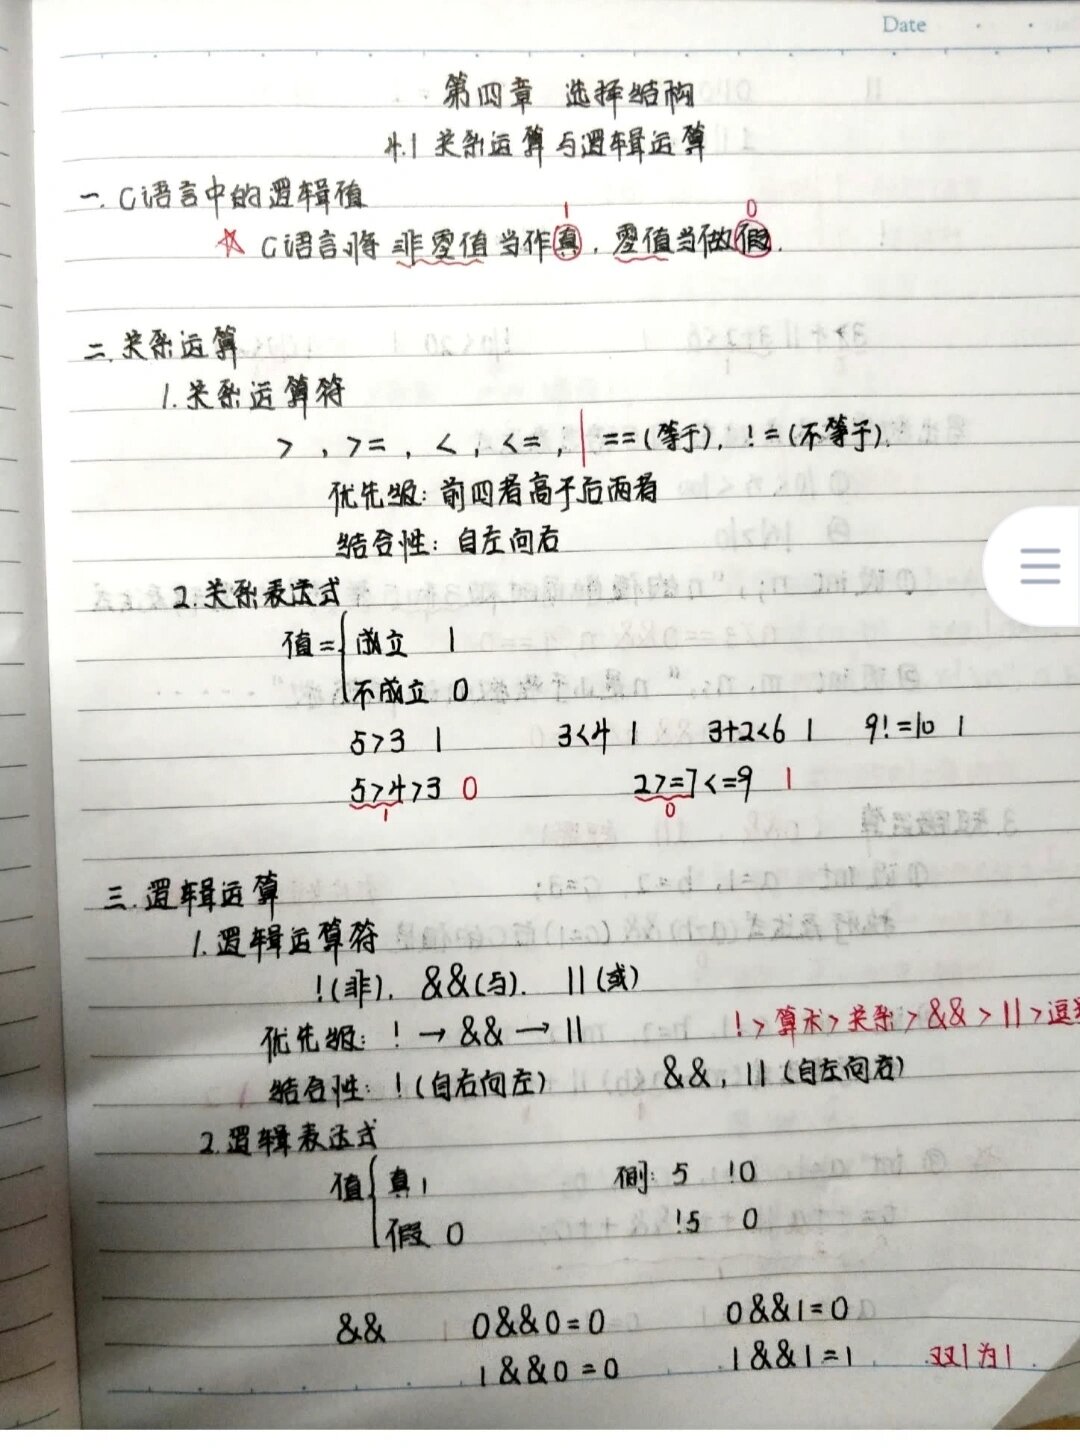 Date
第四章 选择结构
4.1 关系运算与逻辑运算
一. C语言中的逻辑值
1 0
☆ C语言将 非零值当作真, 零值当做假.
二. 关系运算
1. 关系运算符
> , >= , < , <= , | ==(等于), !=(不等于).
优先级: 前四者高于后两者
结合性: 自左向右
2. 关系表达式
值={成立 1
不成立 0
5>3 1 3<4 1 3+2<6 1 9!=10 1
5>4>3 0 2>=7<=9 1
1 0
三. 逻辑运算
1. 逻辑运算符
!(非). &&(与). ||(或)
优先级: ! → && → || !>算术>关系>&&>||>逗
结合性: !(自右向左) &&, ||(自左向右)
2. 逻辑表达式
值{真 1 例: 5 !0
假 0 !5 0
&& 0&&0=0 0&&1=0
1&&0=0 1&&1=1 双1为1